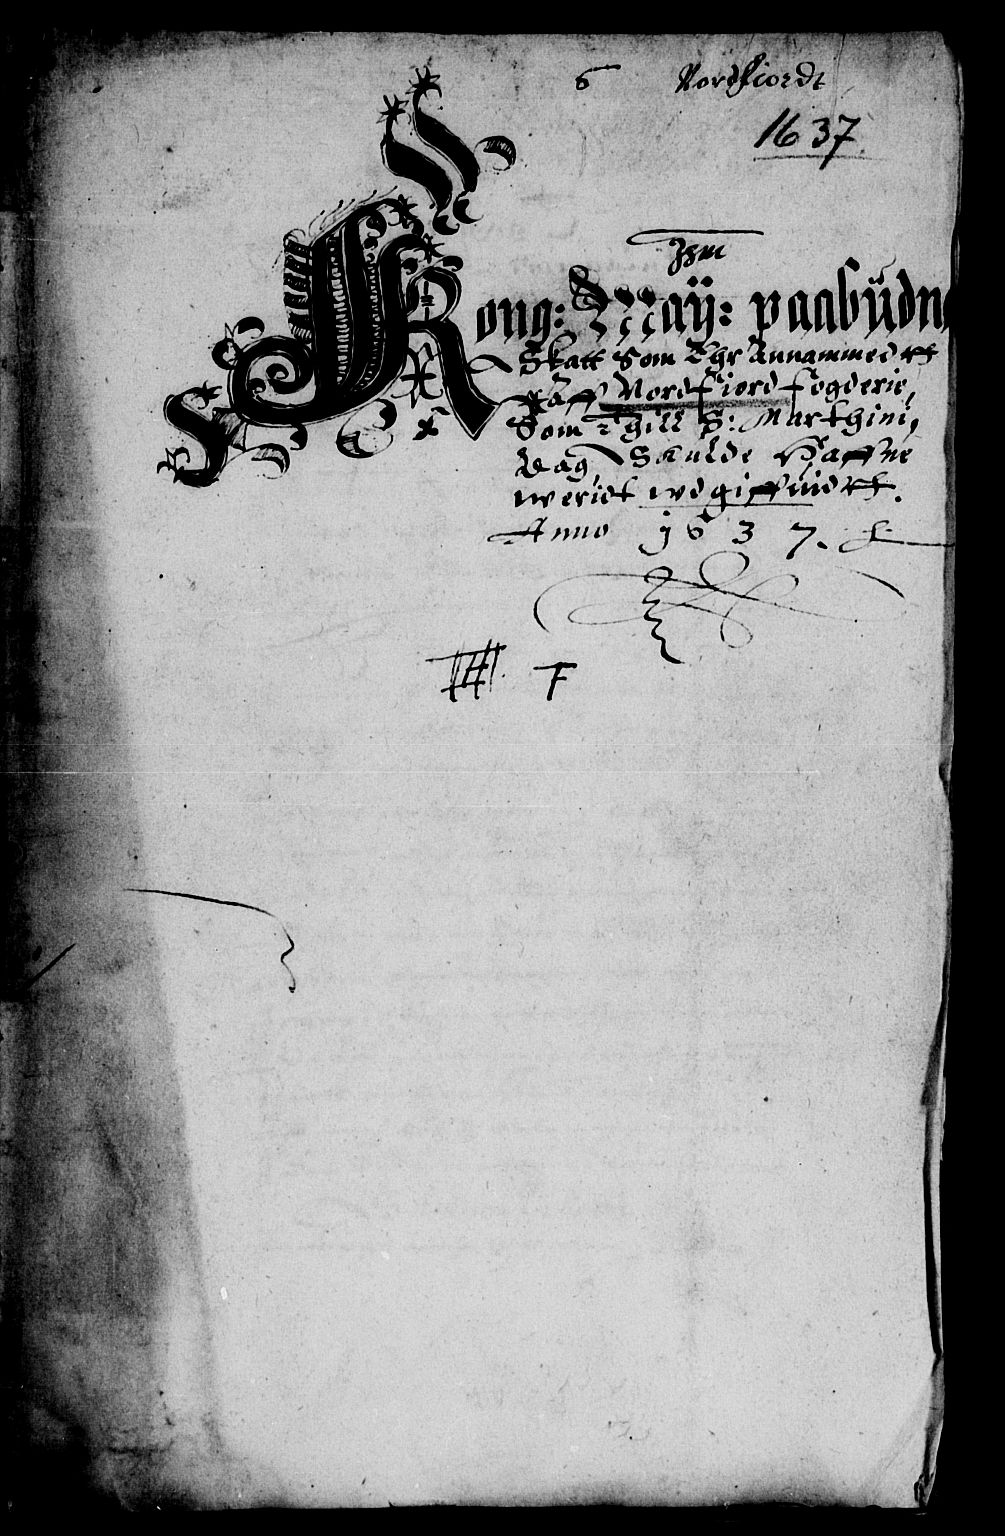 6 Nordfiordt
1637
Kong: Maÿ: paabüdn
Skatt Som Ehr Annammedtt
Aff Nordfiord fogderie,
Som Thill S: Marthini,
Dag, Skulde Haffue
weridt wdgiffuidtt.
Anno 1637.
F